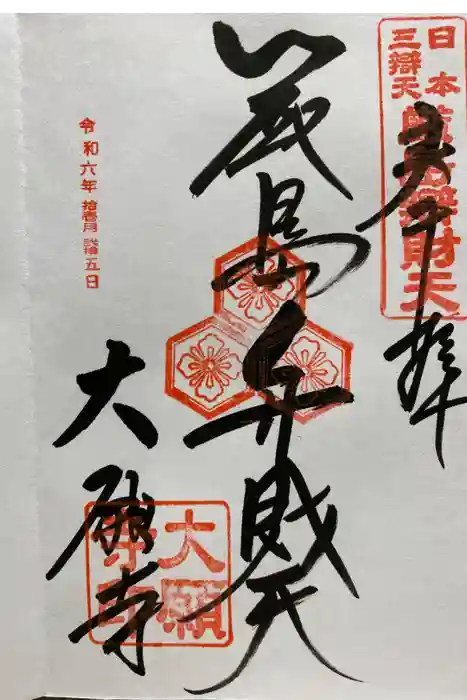 日本
三辯天
嚴島辯財天
奉拝
厳島弁財天
令和六年 拾壱月 弐拾五日
大願寺
大願
寺印